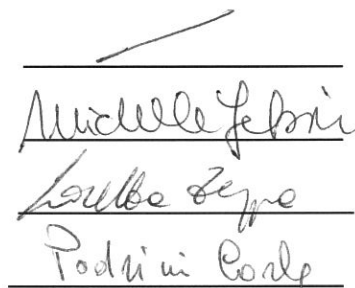 Michele
Loretta Zeppa
Podrini Carlo